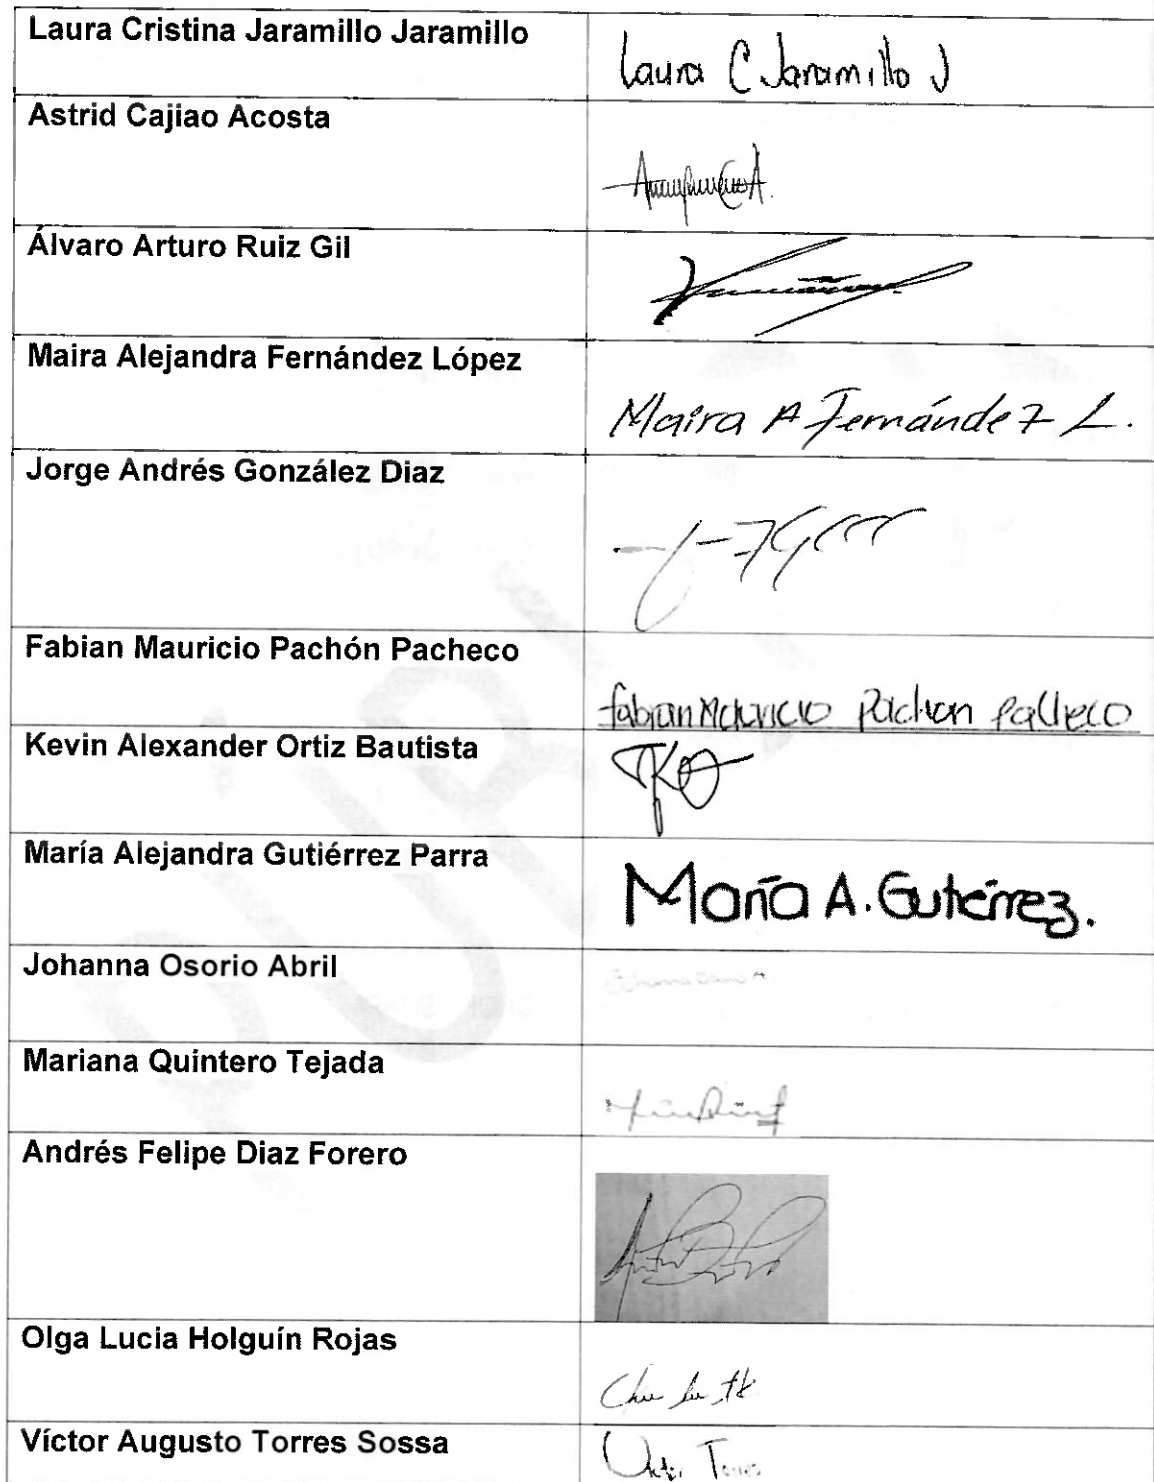 Laura Cristina Jaramillo Jaramillo
Laura C Jaramillo J
Astrid Cajiao Acosta
Álvaro Arturo Ruiz Gil
Maira Alejandra Fernández López
Maira A Fernández L.
Jorge Andrés González Diaz
Fabian Mauricio Pachón Pacheco
fabian Mauricio Pachon Pacheco
Kevin Alexander Ortiz Bautista
María Alejandra Gutiérrez Parra
María A. Gutiérrez.
Johanna Osorio Abril
Mariana Quintero Tejada
Andrés Felipe Diaz Forero
Olga Lucia Holguín Rojas
Víctor Augusto Torres Sossa
Victor Torres